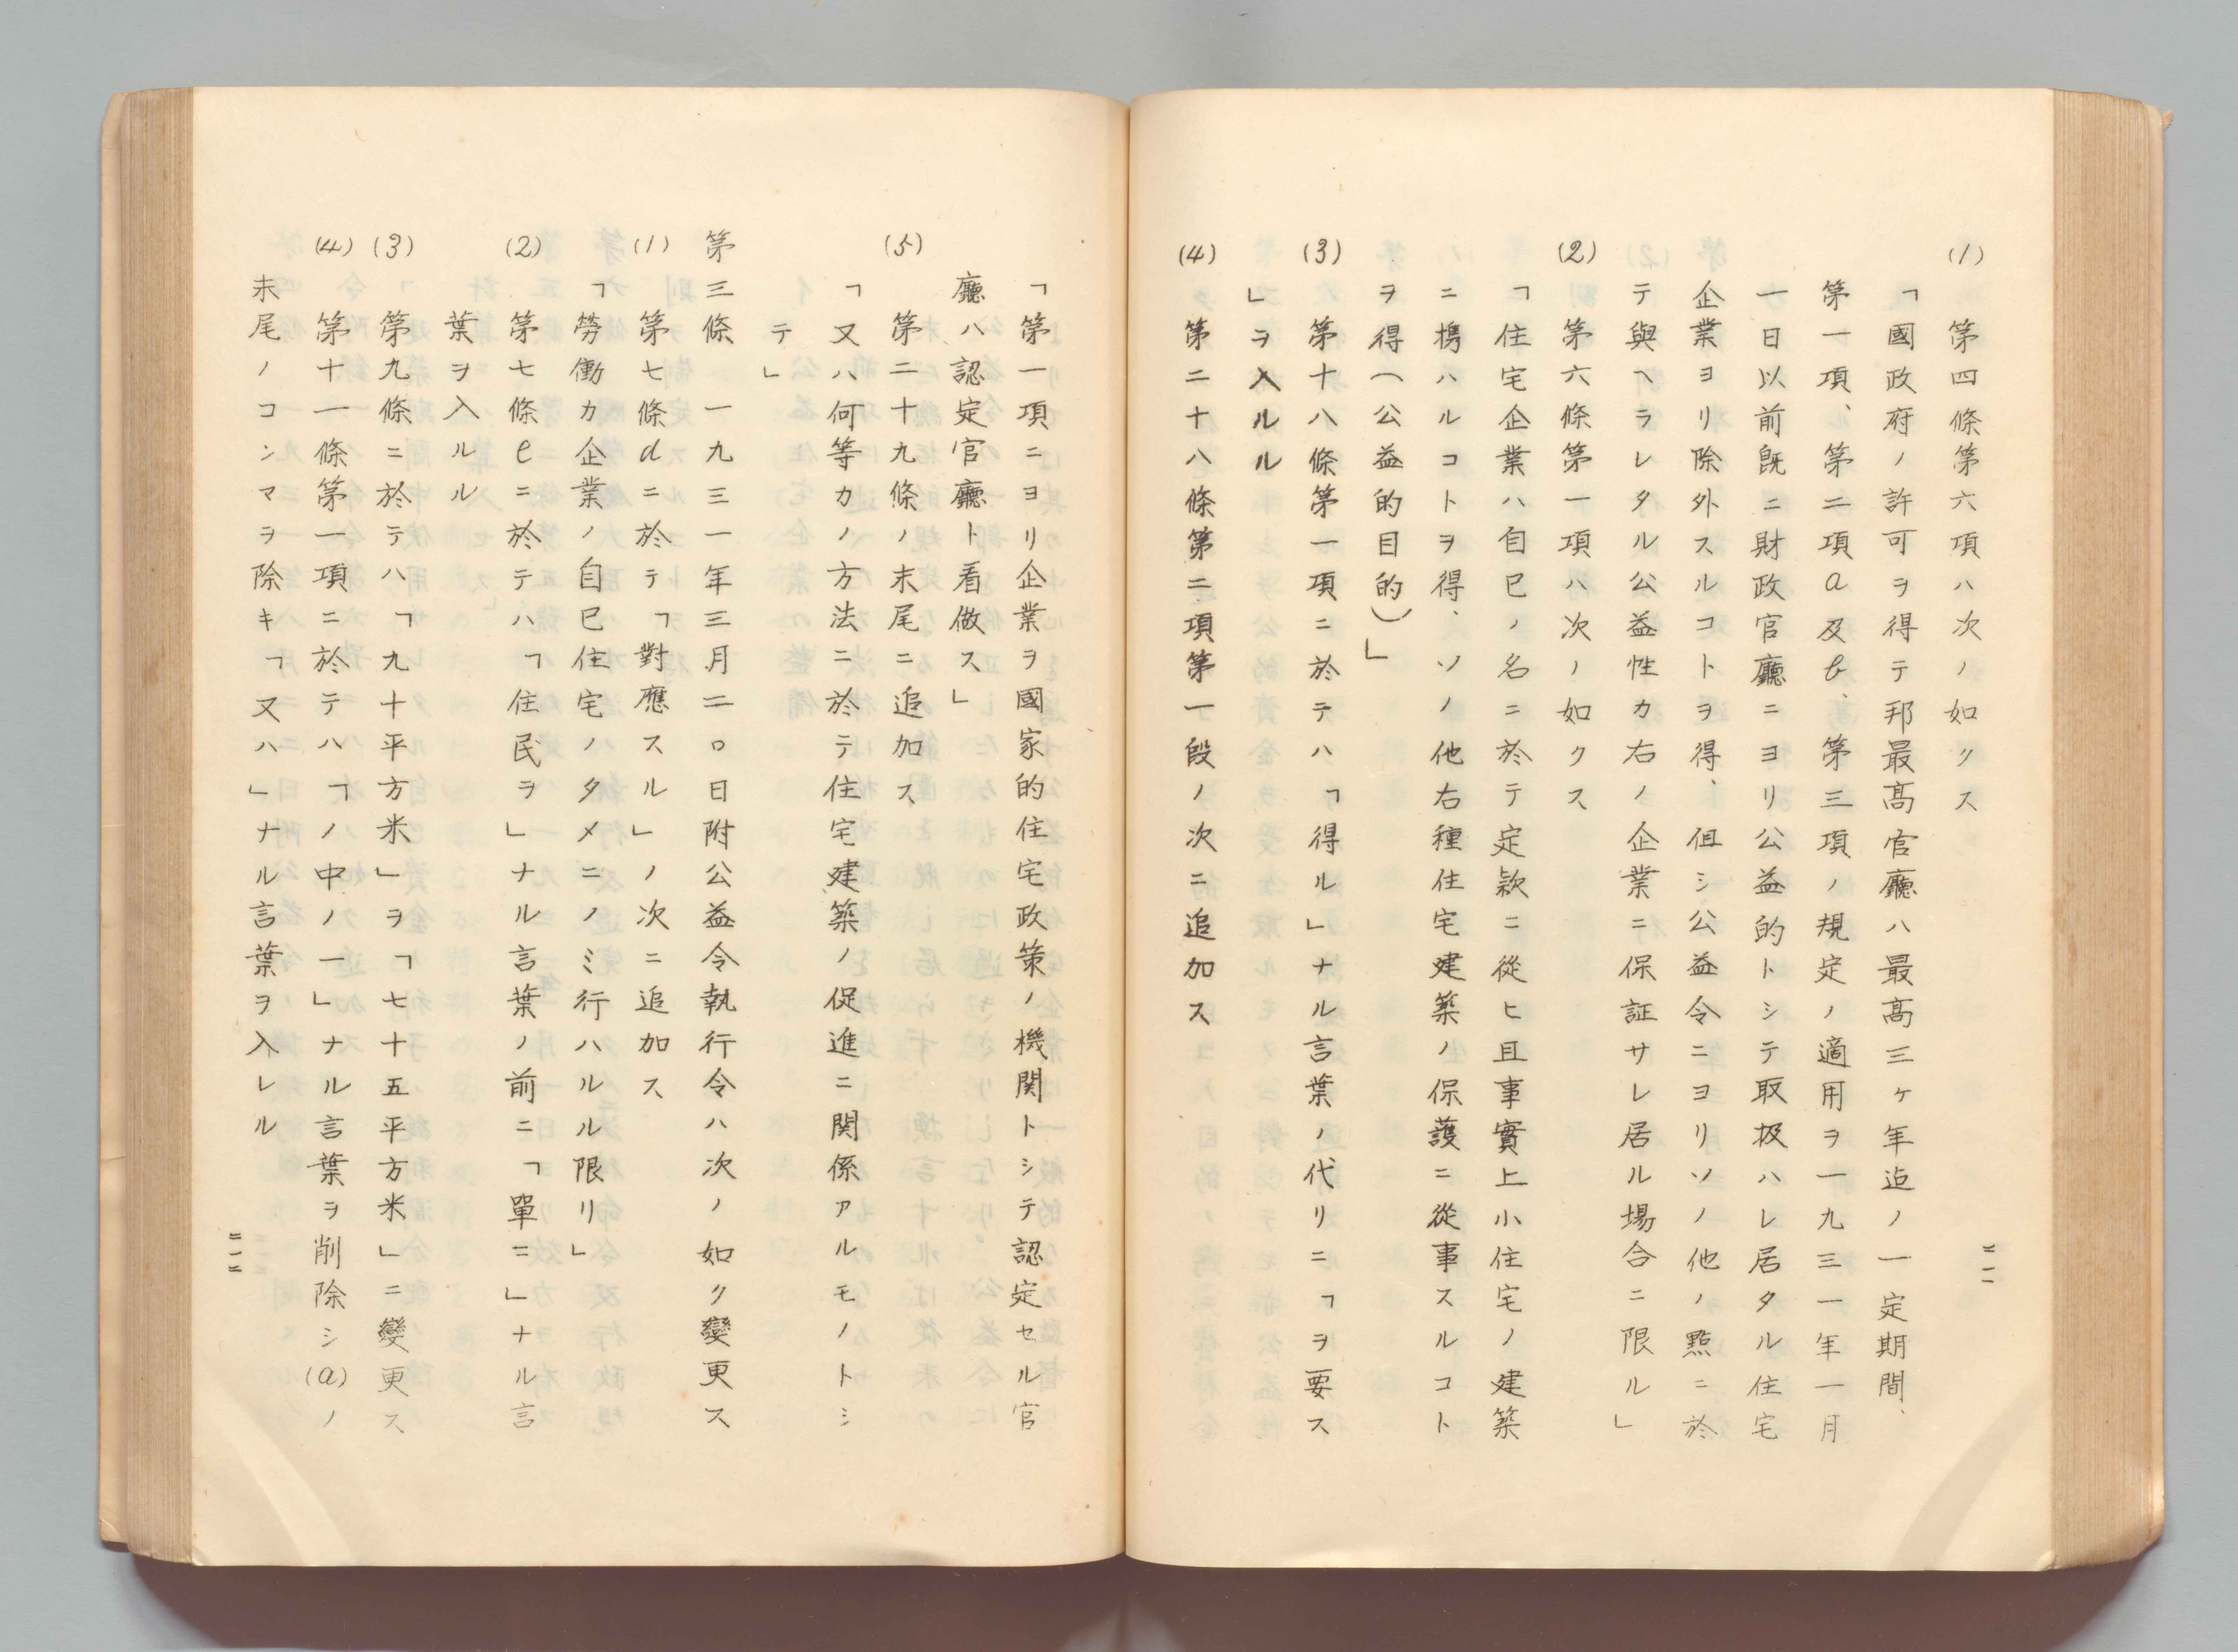 (1) 第四條第六項ハ次ノ如クス
「國政府ノ許可ヲ得テ邦最高官廳ハ最高三ヶ年迄ノ一定期間、
第一項、第二項a及b、第三項ノ規定ノ適用ヲ一九三一年一月
一日以前旣ニ財政官廳ニヨリ公益的トシテ取扱ハレ居タル住宅
企業ヨリ除外スルコトヲ得、但シ公益令ニヨリソノ他ノ點ニ於
テ與ヘラレタル公益性カ右ノ企業ニ保証サレ居ル場合ニ限ル」
(2) 第六條第一項ハ次ノ如クス
「住宅企業ハ自己ノ名ニ於テ定款ニ從ヒ且事實上小住宅ノ建築
ニ携ハルコトヲ得、ソノ他右種住宅建築ノ保護ニ從事スルコト
ヲ得(公益的目的)」
(3) 第十八條第一項ニ於テハ「得ル」ナル言葉ノ代リニ「ヲ要ス
」ヲ入ルル
(4) 第二十八條第二項第一段ノ次ニ追加ス
二一一
「第一項ニヨリ企業ヲ國家的住宅政策ノ機関トシテ認定セル官
廳ハ認定官廳ト看做ス」
(5) 第二十九條ノ末尾ニ追加ス
「又ハ何等カノ方法ニ於テ住宅建築ノ促進ニ関係アルモノトシ
テ」
第三條 一九三一年三月二〇日附公益令執行令ハ次ノ如ク變更ス
(1) 第七條dニ於テ「對應スル」ノ次ニ追加ス
「勞働カ企業ノ自己住宅ノタメニノミ行ハルル限リ」
(2) 第七條eニ於テハ「住民ヲ」ナル言葉ノ前ニ「單ニ」ナル言
葉ヲ入ルル
(3) 第九條ニ於テハ「九十平方米」ヲ「七十五平方米」ニ變更ス
(4) 第十一條第一項ニ於テハ「ノ中ノ一」ナル言葉ヲ削除シ(a)ノ
末尾ノコンマヲ除キ「又ハ」ナル言葉ヲ入レル
二一二